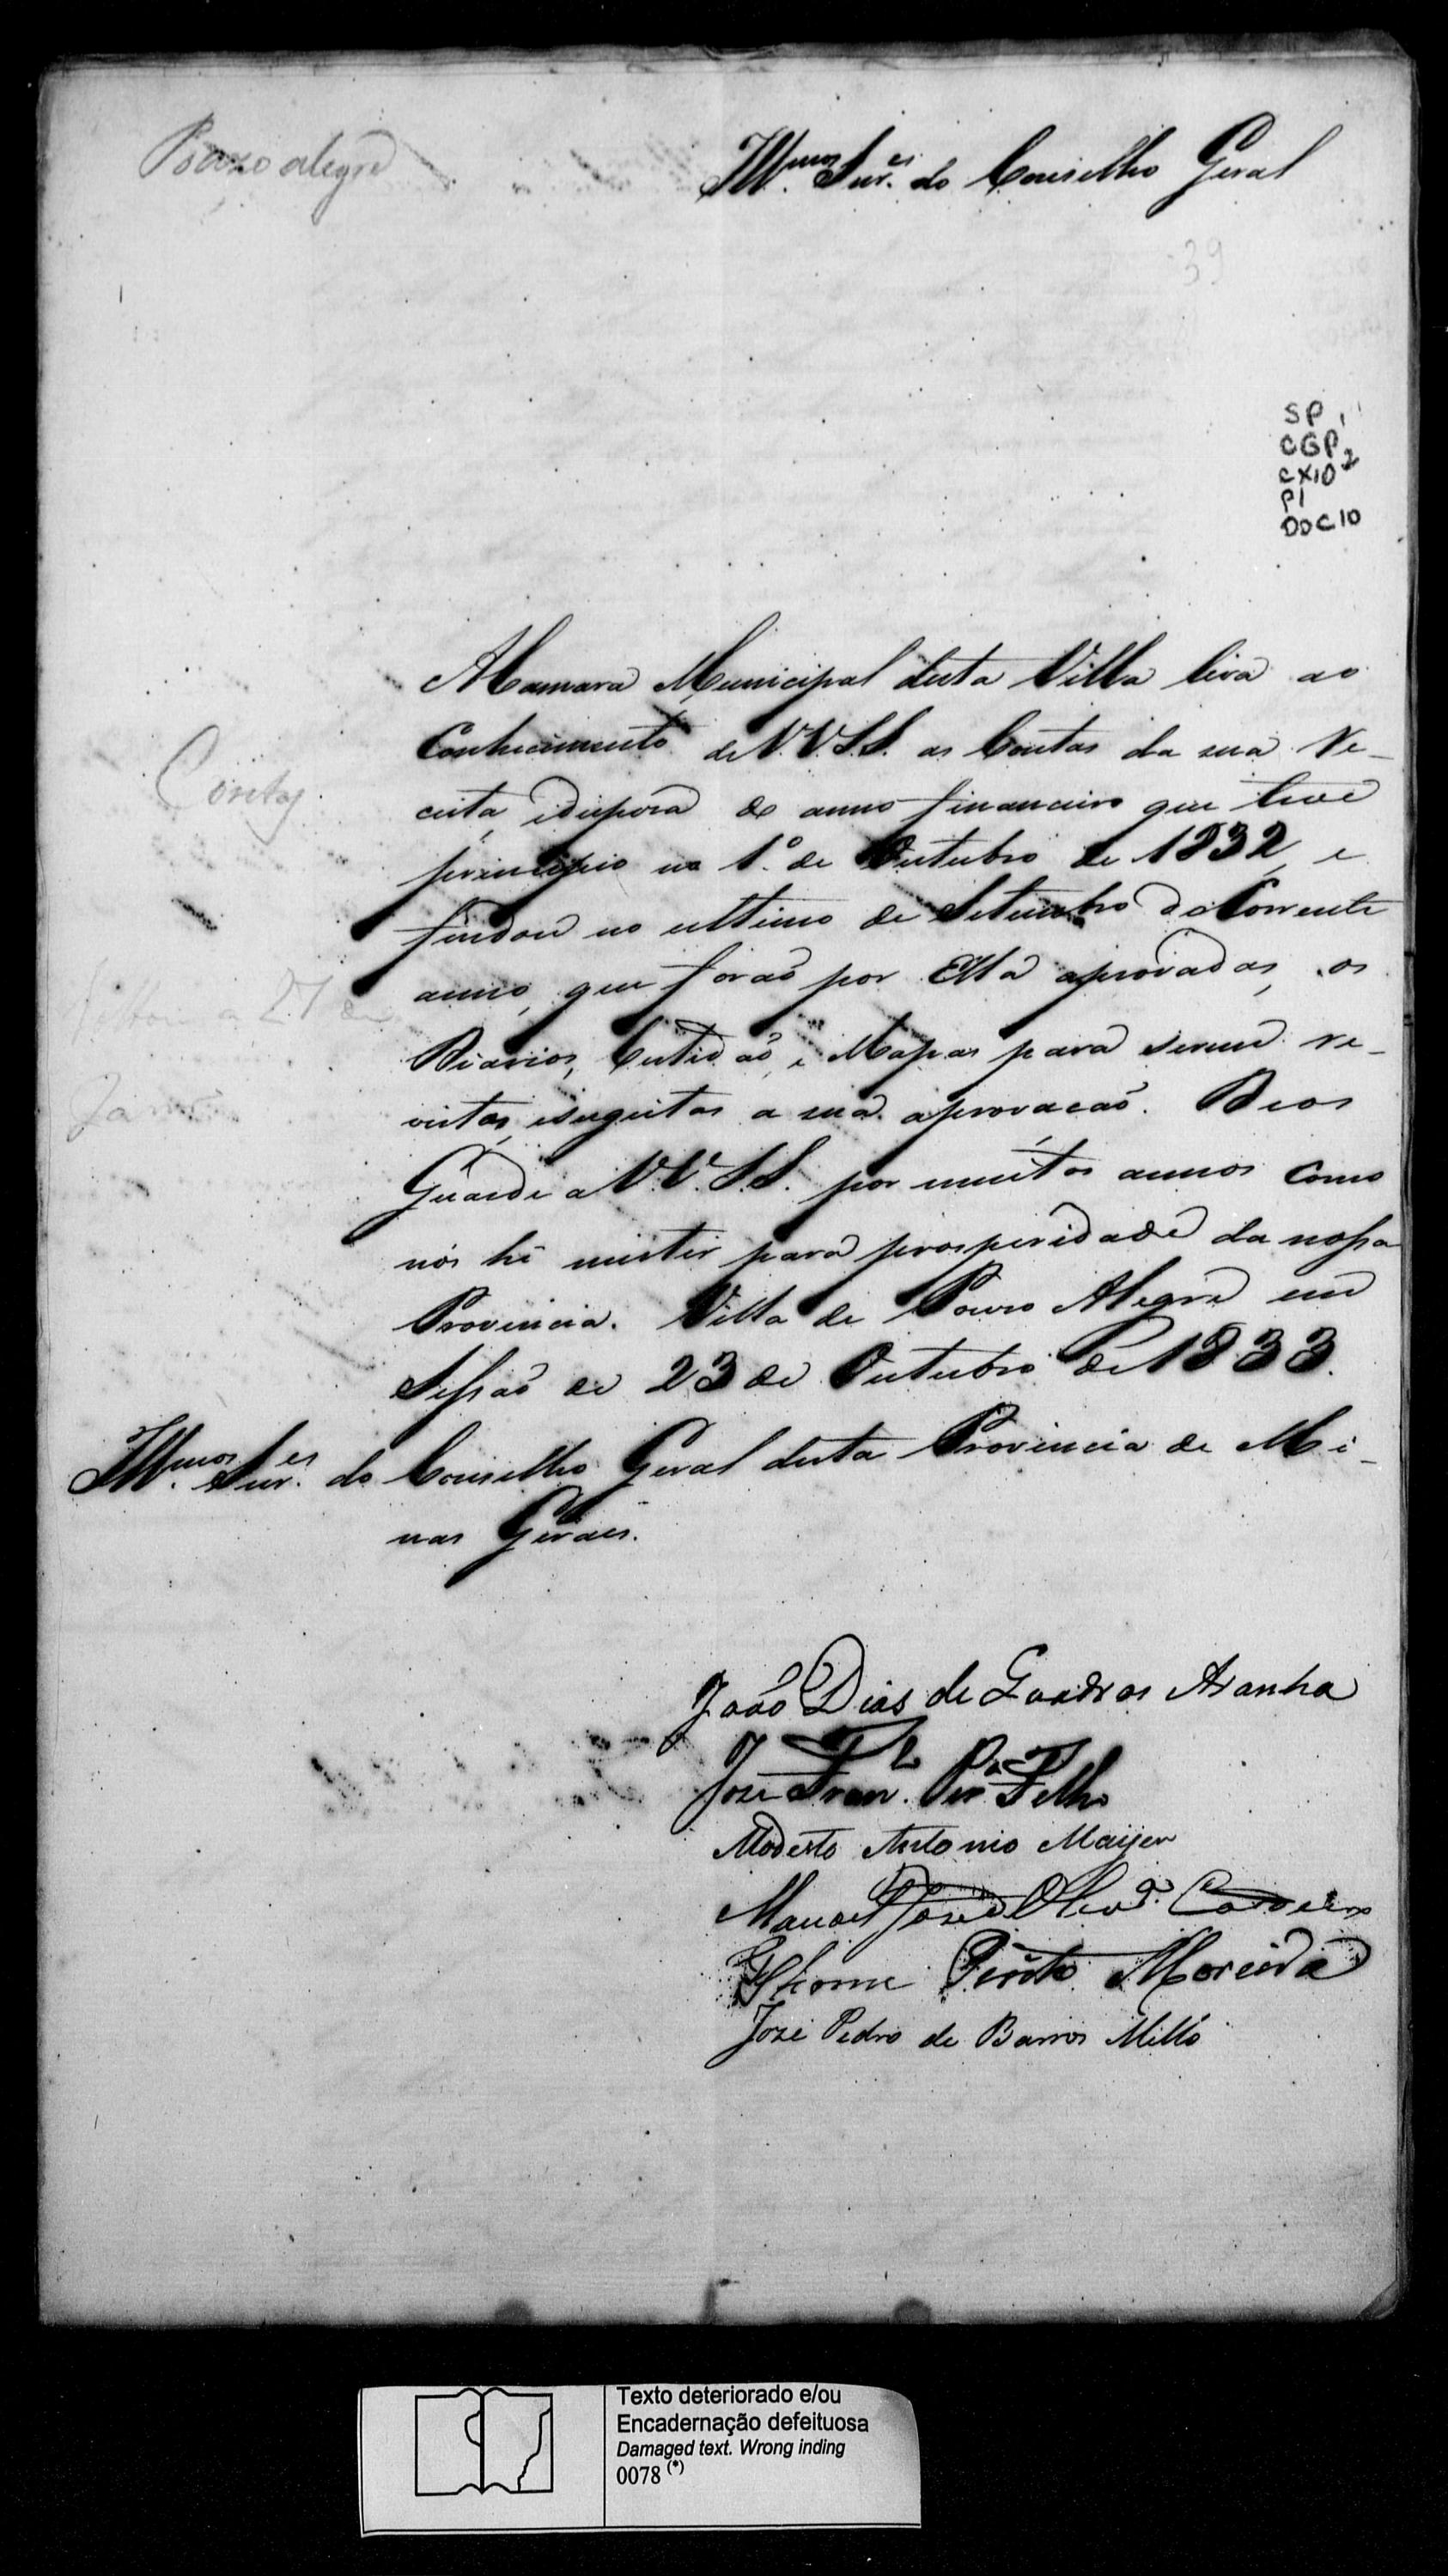 Pouzo alegre
Ill.mos Snr.es do Conselho Geral
39
SP
CGP1
CX102
P1
DOC10
A Camara Municipal desta Villa leva ao
Conhecimento de V.V.S.S. as Contas da sua Re-
ceita, e despeza do anno financeiro que teve
principio no 1.º de Outubro de 1832, e
findou no ultimo de Setembro do Corrente
anno, que forão por Ella aprovadas, os
Diarios, Certidão, e Mapas para serem re-
vistas, e sugeitas a sua aprovacão. Deos
Guarde a V.V.S.S. por muitos annos Como
nós hé mister para prosperidade da nossa
Provincia. Villa de Pouzo Alegre em
Sessão de 23 de Outubro de 1833.
Ill.mos Snr.es do Conselho Geral desta Provincia de Mi-
nas Geraes.
Contas
27 de
João Dias de Quadros Aranha
Joze Fran.co Per.a Filho
Modesto Antonio Mayer
Manoel José d'Oliv.ra
Thome Pinto Moreira
Joze Pedro de Barros Mello
Texto deteriorado e/ou
Encadernação defeituosa
Damaged text. Wrong inding
0078 (*)